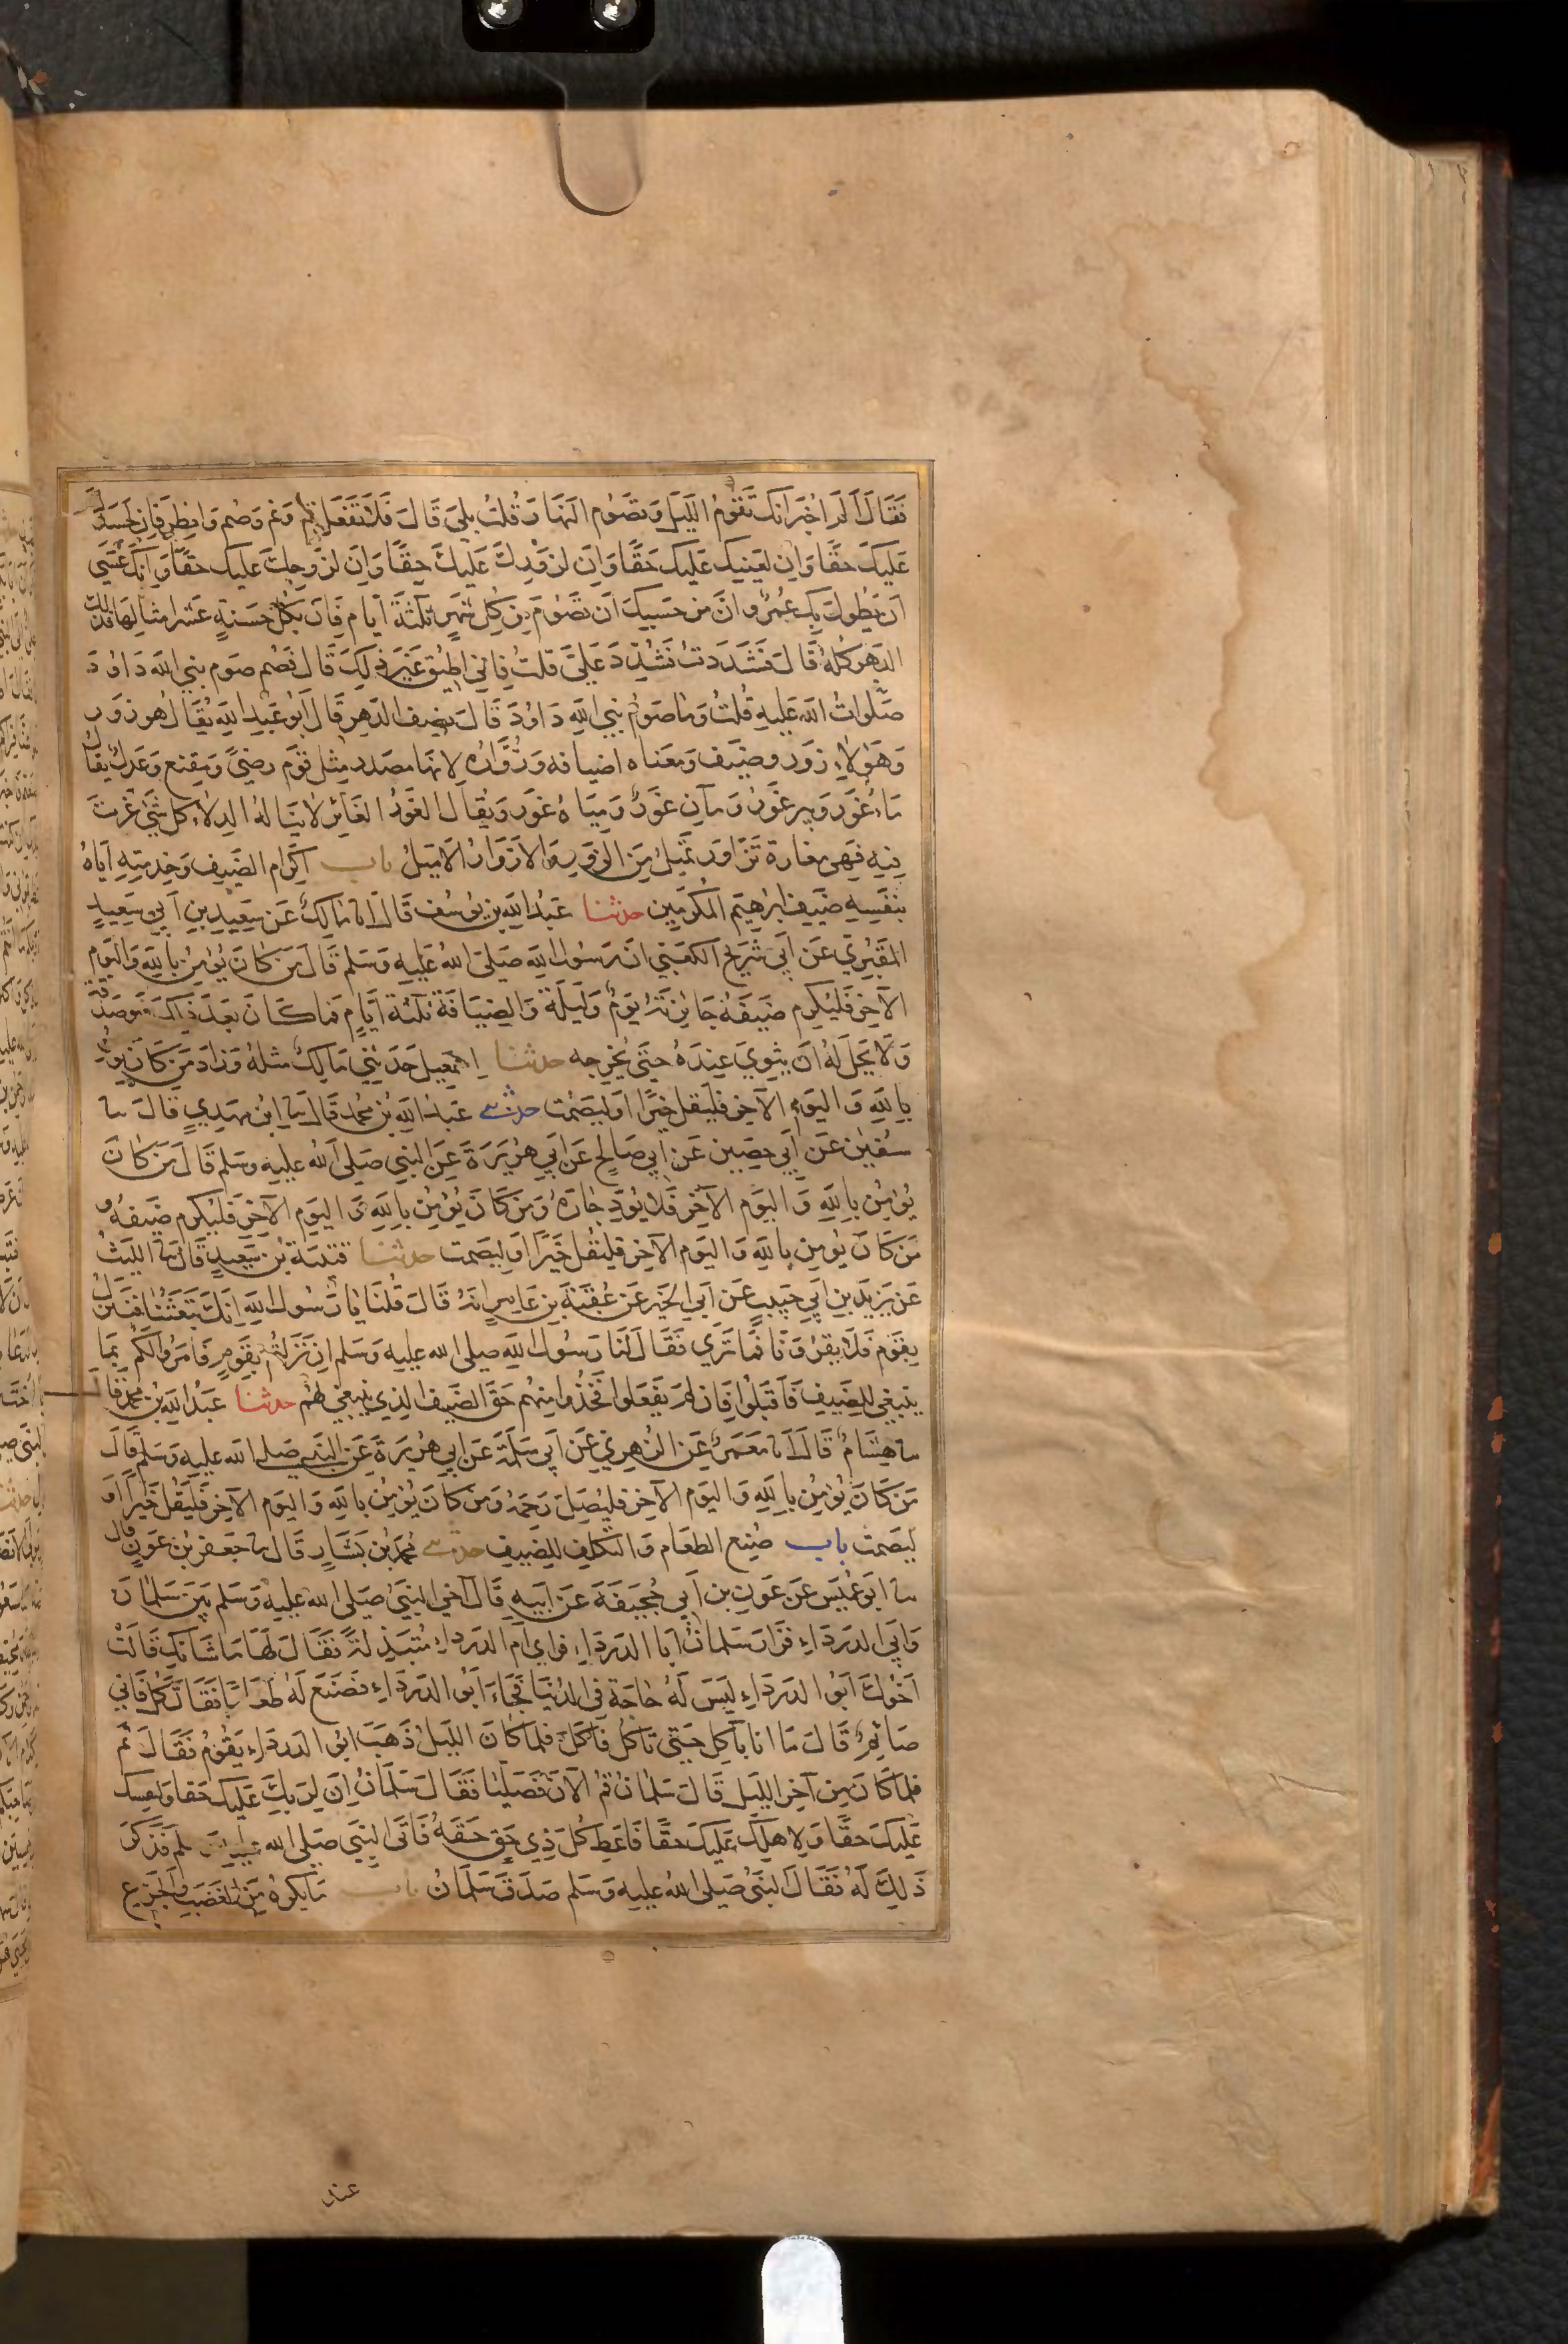 فَقَالَ أَلَمْ اُخْبَرْ انَّكَ تَقُومُ اللَّيْلَ وَتَصُومُ النَّهَارَ قُلتُ بلىَ قَالَ فَلَا تَفْعَل قُم وَنَم وَصُم وَافِطِر فَإِنّ لِجَسَدِكَ
عَلَيكَ حَقًّا وَاِنَ لِعَيْنِكَ عَلَيكَ حَقًّا وَاِنَ لِزَوْرِكَ عَلَيْكَ حقًّا وَاِنَ لِزَوجِكَ عَليك حقًّا وَاِنَّكَ عَسَى
أن يَطُولَ بِكَ عُمُرٌ وَانَّ مِن حَسبِكَ أَن تَصُومَ مِن كُلِ شَهْرٍ ثلثَةَ أيَّامٍ فَإن بكُلِّ حَسَنةٍ عَشرَ امثَالِهَا فذلك
الدَهر كُلهُ قَالَ فشَدَدتُ فَشُدِّدَ عَليَّ قلتُ فإنى اطيق غَيرَ ذلِكَ قَالَ فَصُم صَومَ نبي الله دَاوُدَ
صَلواتُ الله عَليهِ قُلتُ وَمَا صَومُ نبي اللهِ دَاوُدَ قَالَ نصِف الدَهرِ قَالَ ابُو عَبدِ اللهِ يُقَال هُو زَورٌ
وَهَؤلَاءِ زَور وضَيف وَمَعنَاه اضيَافه وَزُوَّارُه لانهَا مصدر مِثل قَوم رضىً وَمَقنع وَعَدل يقَال
مَاءٌ غَور وَبير غَورٌ وَمآن غَورٌ وَمِيَاهٌ غَور وَيُقَال الغَورُ الغَائِر لا يَنَالهُ الدِلَاء كل شَئ غُرتَ
فِيهِ فهَى مغَارة تَزَاوَر تَميلُ مِنَ الزوَرِ وَالازوَارُ الاميَلُ باب اكَرام الضَيف وَخِدمتِهِ اياهُ
بنَفسِهِ ضَيف ابرٰهيَم المُكرَمِين حدثنا عَبدُ اللهِ بن يوسُف قَالَ انا مَالكٌ عَن سَعِيدِ بنِ أبي سَعِيدٍ
المَقبُرِي عَن أبى شُرَيحٍ الكَعبِي ان رَسُولَ اللهِ صَلى الله عَليهِ وَسَلم قَالَ مَن كَانَ يُؤمِنُ باللهِ وَاليَوم
الآخِر فَليُكرِم ضَيفَهُ جَائِزَتُهُ يَومٌ وَلَيلَةٌ وَالضِيَافَةُ ثلثة أيَّامٍ فمَا كَانَ بَعدَ ذلك فهو صَدَقة
وَلَا يَحِلُ لَهُ ان يَثوِيَ عِندَهُ حَتى يُخرِجه حدثنا اسمٰعِيل حَدثنِي مَالِكٌ مثلهُ وَزَادَ مَن كَان يؤمنُ
باللهِ وَاليَومِ الآخِر فليقل خَيرًا اَو ليَصمُت حدثنى عَبدُ اللهِ بن محُمد قَالَ ثنا ابن مهَدِي قَالَ ثنا
سُفيٰن عَن أبي حَصِين عَن أبي صَالح عَن ابي هُرَيرَةَ عَن النبي صَلى الله عَليهِ وسَلم قَالَ مَن كَانَ
يُؤمِنُ باللهِ وَاليَوم الآخِر فَلا يُوذِ جَارَهُ وَمَن كَانَ يُؤمِنُ باللهِ وَاليَوم الآخِر فَليُكرِم ضَيفَهُ و
مَن كَانَ يؤمِن باللهِ وَاليَوم الآخِر فليَقُل خَيرًا اَو ليَصمت حدثنا قتيبَة بن سَعِيدٍ قَالَ ثنا الليثُ
عَن يَزيدَ بنِ أبي حَبيبٍ عَن أبي الخَير عَن عُقبَةَ بنِ عَامِرٍ انهُ قَالَ قُلنَا يَا رَسُول اللهِ انكَ تَبعَثُنا فَننزلُ
بقَوم فَلا يقرُونَا فمَا تَرى فقَالَ لنَا رَسُول الله صلى الله عليهِ وَسَلم ان نَزَلتُم بقَومٍ فَامَرُوا لَكم بمَا
ينبَغي للضَيفِ فَاقبَلُوا فَان لَم يَفعَلوا فَخُذُوا مِنهُم حَق الضَيف الذِي يَنبغي لهُم حدثنا عَبدُ اللهِ بنُ محمدٍ قال
ثنا هشَامٌ قَالَ انا مَعمَرٌ عَن الزهرِيِ عَن أبى سَلَمَةَ عَن ابي هُريرَةَ عَن النبي صَلى الله عليهِ وَسَلم قَالَ
مَن كَانَ يُؤمِنُ باللهِ وَاليَوم الآخِر فليُكرم ضيفه وَمَن كَانَ يُؤمِنُ باللهِ وَاليَوم الآخِر فليَصِل رَحمَهُ وَمَن كَانَ يُؤمِنُ باللهِ وَاليَوم الآخِر فَليَقُل خَيرًا اَو
ليَصمُت باب صُنع الطعَام وَالتكلفِ للضَيفِ حدثنى محُمدُ بن بَشَارٍ قَالَ ثنا جَعفر بن عَون قال
ثنا ابو عُمَيس عَن عَونِ بنِ أبي جُحَيفَةَ عَن ابيهِ قَالَ آخى النبيُ صَلى الله عليهِ وَسَلم بَينَ سَلمَانَ
وَابي الدَردَاءِ فزَارَ سَلمانُ ابا الدَردَاءِ فراى ام الدَردَاءِ مُتبَذِلةً فَقَالَ لَهَا مَا شَانكِ قَالَت
اَخُوكَ ابُو الدَردَاءِ ليَسَ لَهُ حَاجَة في الدُنيَا فجَاءَ ابُو الدَردَاءِ فصَنَعَ لَهُ طعَامًا فقَالَ كُل فَانى
صَائِمٌ قَالَ مَا انا بآكِل حَتى تَاكُل فَاكَلَ فلمَا كَانَ الليَلُ ذَهَبَ ابُو الدَردَاء يَقُومُ فَقَالَ نم
فلمَا كَانَ مِن آخِر الليَل قَالَ سَلمانُ قُم الآن فَصَليَا فَقَالَ سَلمَانُ اِنَ لِرَبكَ عَليكَ حَقا وَلنفسِك
عَليَكَ حَقًا وَلاهلِكَ عَليَكَ حقًّا فَاعطِ كُلَ ذِي حَق حَقَهُ فَاتَى النبيَ صَلى الله عليه وسلم فَذَكرَ
ذَلِكَ لَهُ فَقَالَ النبيُ صَلى اللهُ عَليهِ وَسَلم صَدَقَ سَلمَانُ باب مَا يكرَهُ مِنَ الغَضَبِ وَالجَزع
عند